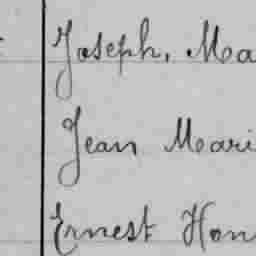 Joseph, Ma
Jean Mari
Ernest Hon